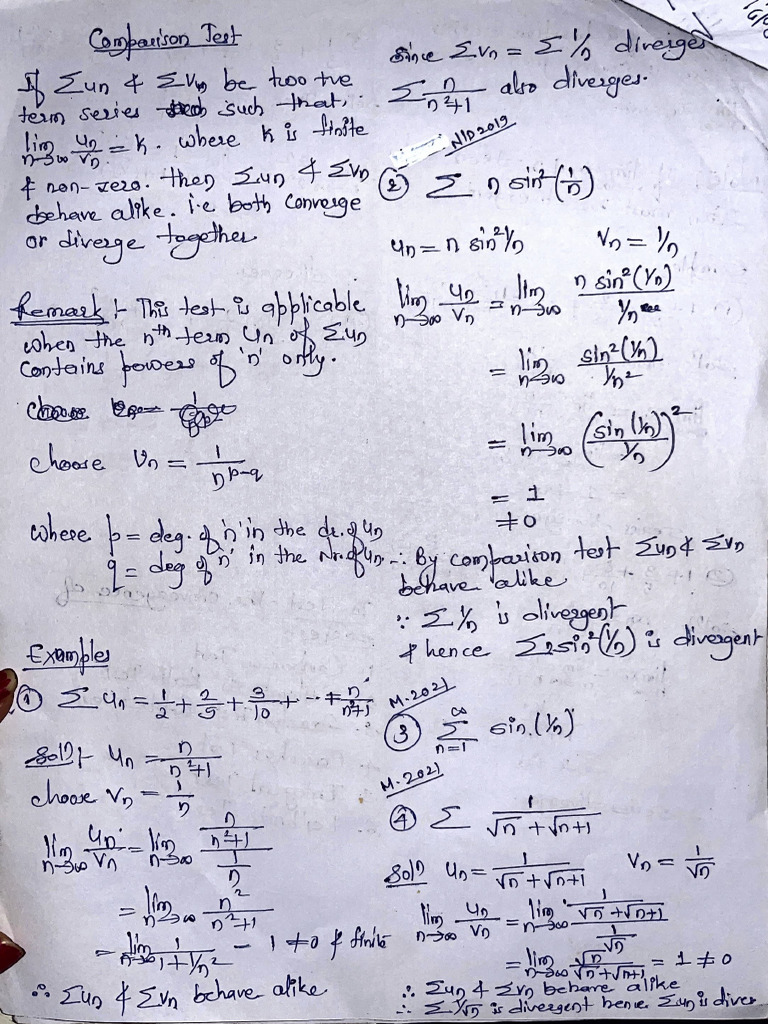 Comparison Test
If Σun & Σvn be two +ve
term series such that,
lim n→∞ un/vn = k. where k is finite
& non-zero. then Σun & Σvn
behave alike. i.e both converge
or diverge together
Remark :- This test is applicable
when the nth term Un of Σun
contains powers of 'n' only.
choose Vn = 1/n^(p-q)
where p = deg. of 'n' in the dr. of un
q = deg of 'n' in the Nr. of un.
Examples
① Σ un = 1/2 + 2/5 + 3/10 + --- + n/(n²+1)
Solⁿ :- un = n/(n²+1)
choose vn = 1/n
lim n→∞ un/vn = lim n→∞ (n/(n²+1))/(1/n)
= lim n→∞ n²/(n²+1)
= lim n→∞ 1/(1+1/n²) = 1 ≠ 0 & finite
∴ Σun & Σvn behave alike
Since Σvn = Σ 1/n diverges
Σ n/(n²+1) also diverges.
N/D 2019
② Σ n sin²(1/n)
un = n sin² 1/n vn = 1/n
lim n→∞ un/vn = lim n→∞ n sin²(1/n) / (1/n)
= lim n→∞ sin²(1/n) / (1/n²)
= lim n→∞ (sin(1/n) / (1/n))²
= 1
≠ 0
∴ By comparison test Σun & Σvn
behave alike
∵ Σ 1/n is divergent
& hence Σ n sin²(1/n) is divergent
M-2021
③ Σ n=1 ∞ sin.(1/n)
M-2021
④ Σ 1/(√n + √n+1)
Solⁿ un = 1/(√n + √n+1) Vn = 1/√n
lim n→∞ un/vn = lim n→∞ (1/(√n + √n+1)) / (1/√n)
= lim n→∞ √n/(√n+√n+1) = 1 ≠ 0
∴ Σun & Σvn behave alike
∴ Σ 1/√n is divergent hence Σun is diver